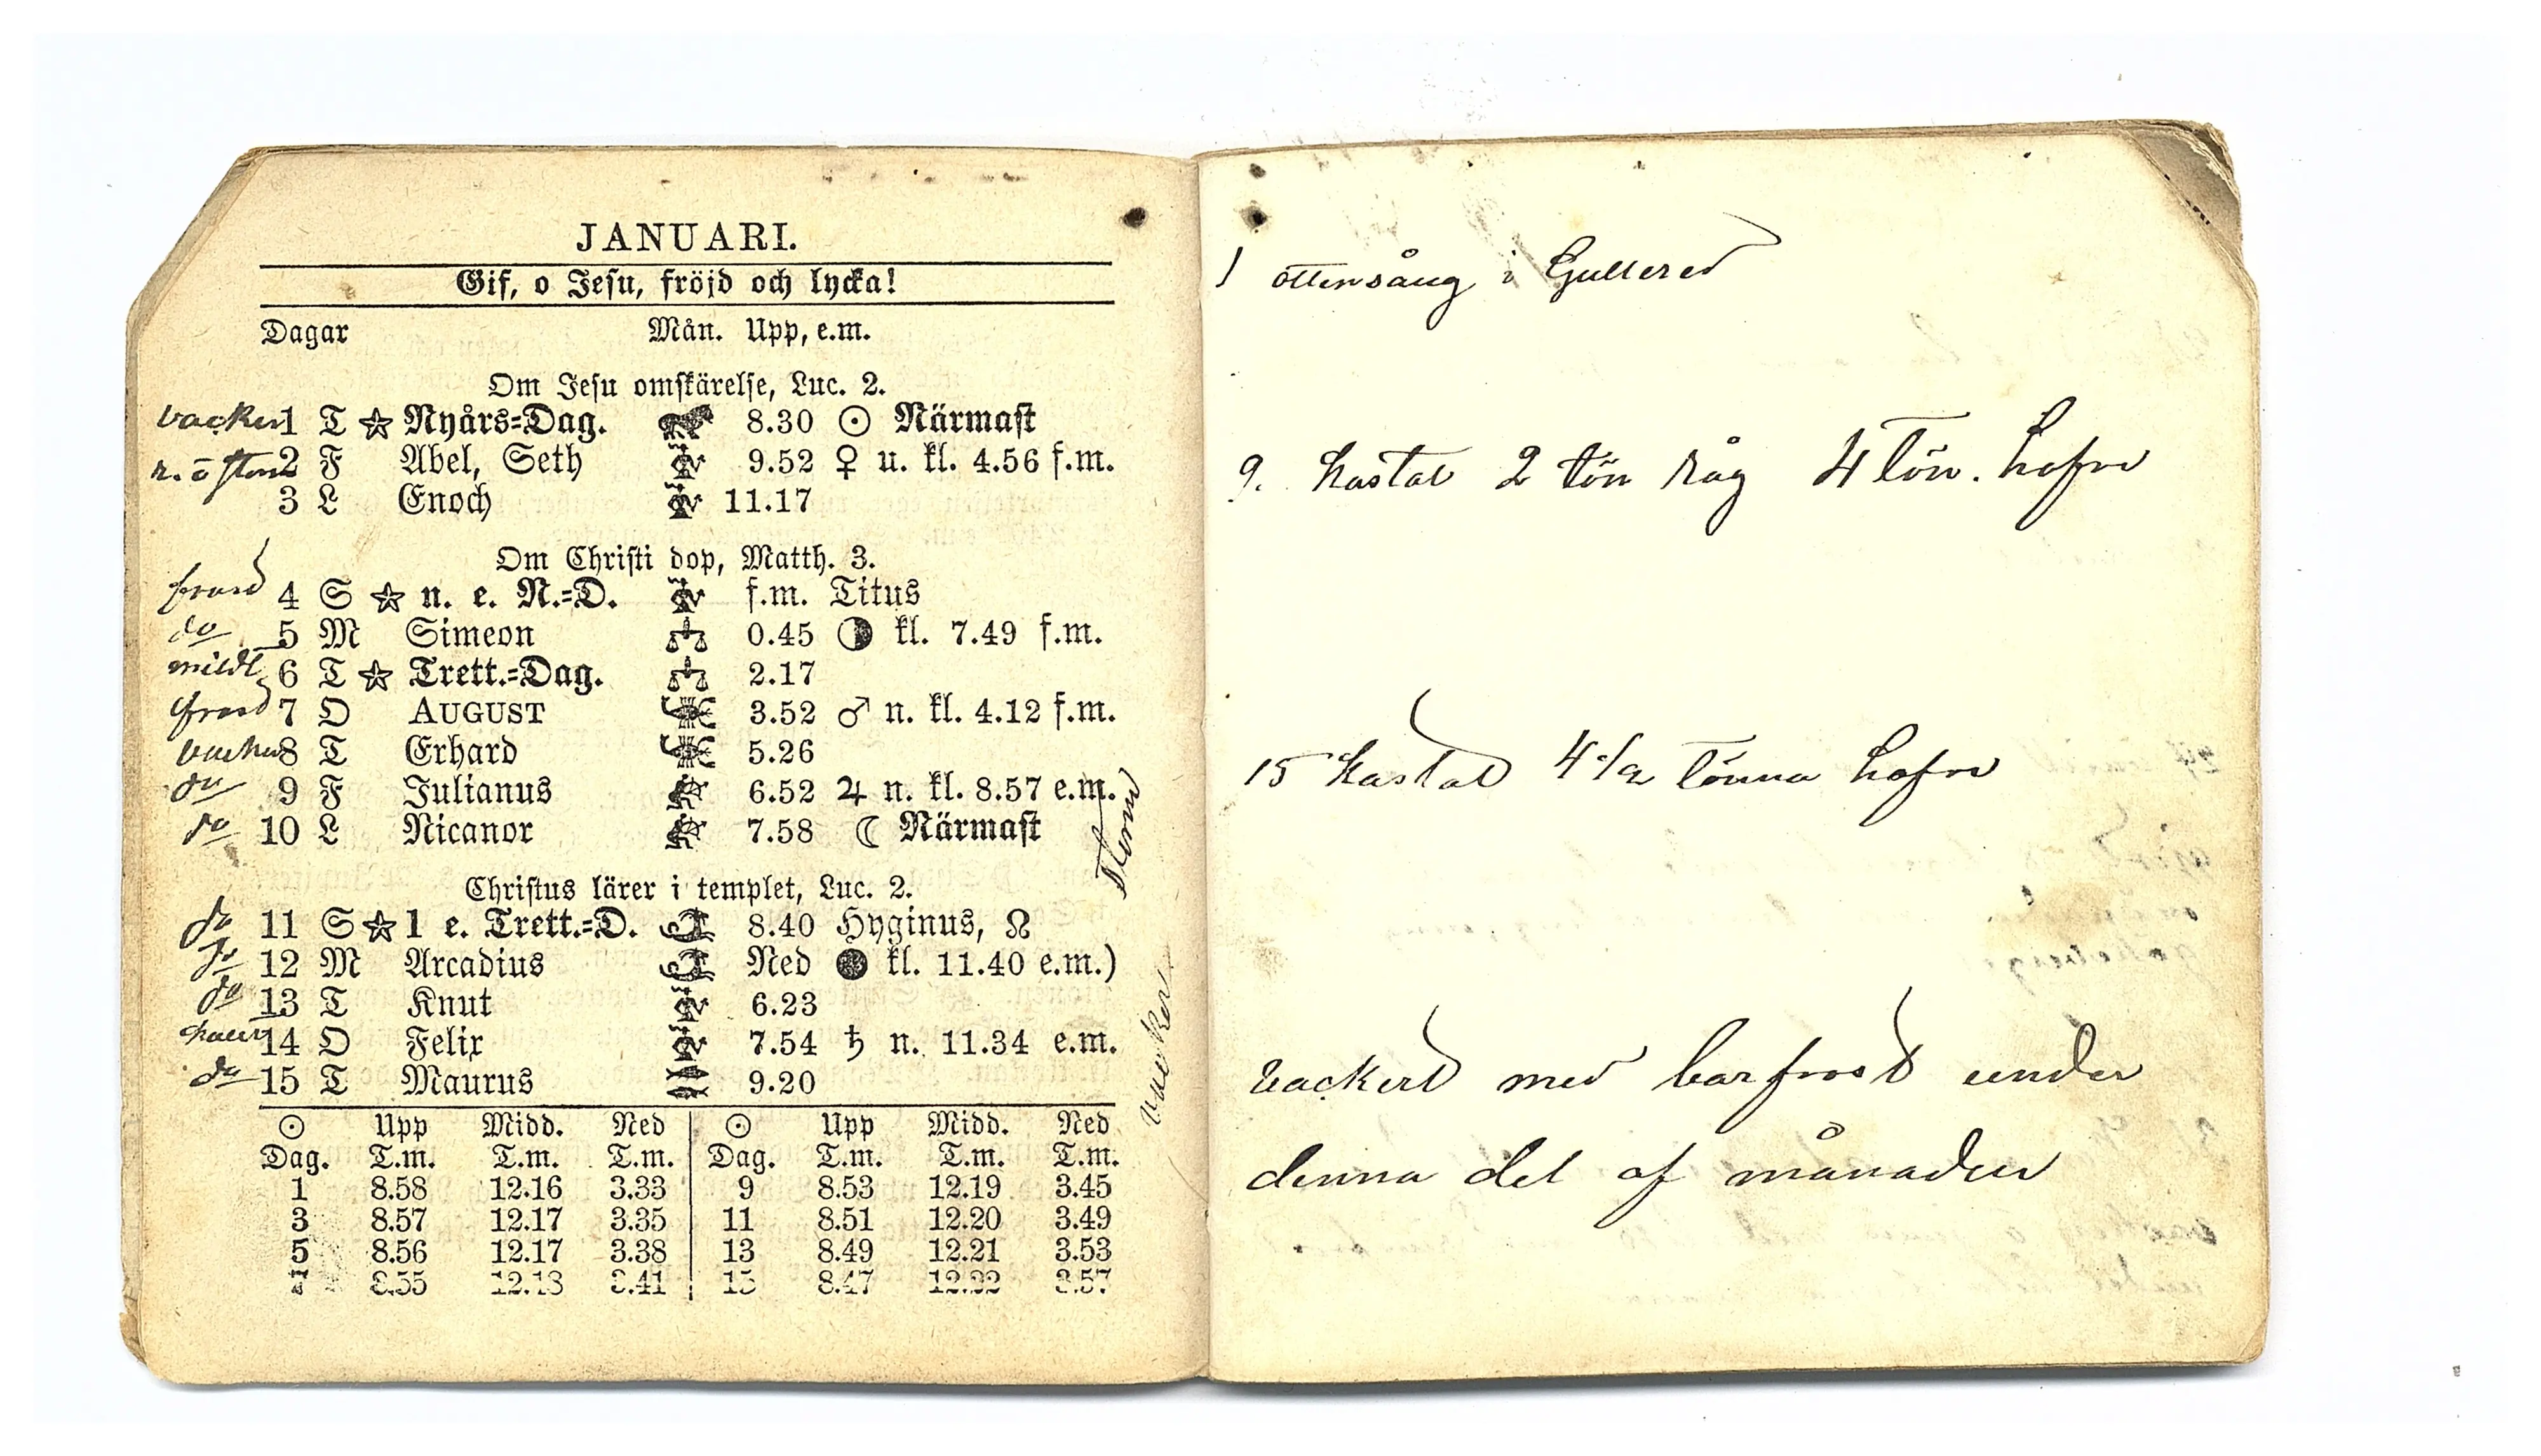 JANUARI.
Gif, o Jesu, fröjd och lycka!
Dagar Mån. Upp, e.m.
Om Jesu omskärelse, Luc. 2.
vacker 1 T ☆ Nyårs=Dag. 8.30 ☉ Närmast
2 F Abel, Seth 9.52 ♀ u. kl. 4.56 f.m.
3 L Enoch 11.17
Om Christi dop, Matth. 3.
frost 4 S ☆ n. e. N.=D. f.m. Titus
do 5 M Simeon 0.45 kl. 7.49 f.m.
mildt 6 T ☆ Trett.=Dag. 2.17
frost 7 O AUGUST 3.52 ♂ n. kl. 4.12 f.m.
vacker 8 T Erhard 5.26
do 9 F Julianus 6.52 ♃ n. kl. 8.57 e.m.
do 10 L Nicanor 7.58 ☾ Närmast
storm
Christus lärer i templet, Luc. 2.
do 11 S ☆ 1 e. Trett.=D. 8.40 Hyginus, ☊
do 12 M Arcadius Ned ● kl. 11.40 e.m.)
do 13 T Knut 6.23
14 O Felix 7.54 ♄ n. 11.34 e.m.
do 15 T Maurus 9.20
vacker
☉ Upp Midd. Ned ☉ Upp Midd. Ned
Dag. T.m. T.m. T.m. Dag. T.m. T.m. T.m.
1 8.58 12.16 3.33 9 8.53 12.19 3.45
3 8.57 12.17 3.35 11 8.51 12.20 3.49
5 8.56 12.17 3.38 13 8.49 12.21 3.53
7 8.55 12.18 3.41 15 8.47 12.22 3.57
1 ottensång i Gullered
9. kastat 2 tön råg 4 tön. hafre
15 kastat 4 1/2 tönna hafre
vackert med barfrost under
denna del af månaden